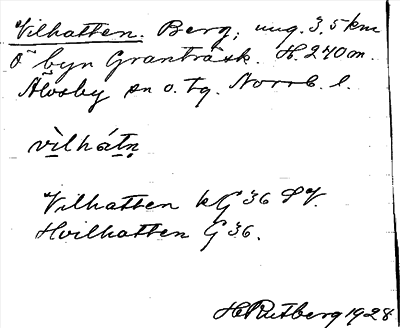 Vilhatten. Berg, ung. 3,5 km
Ö byn Granträsk. H. 240 m.
Älvsby sn o. tg. Norrb. l.
vìlhátn̥
Vilhatten kG 36 SV.
Hvilhatten G 36.
H Rutberg 1928